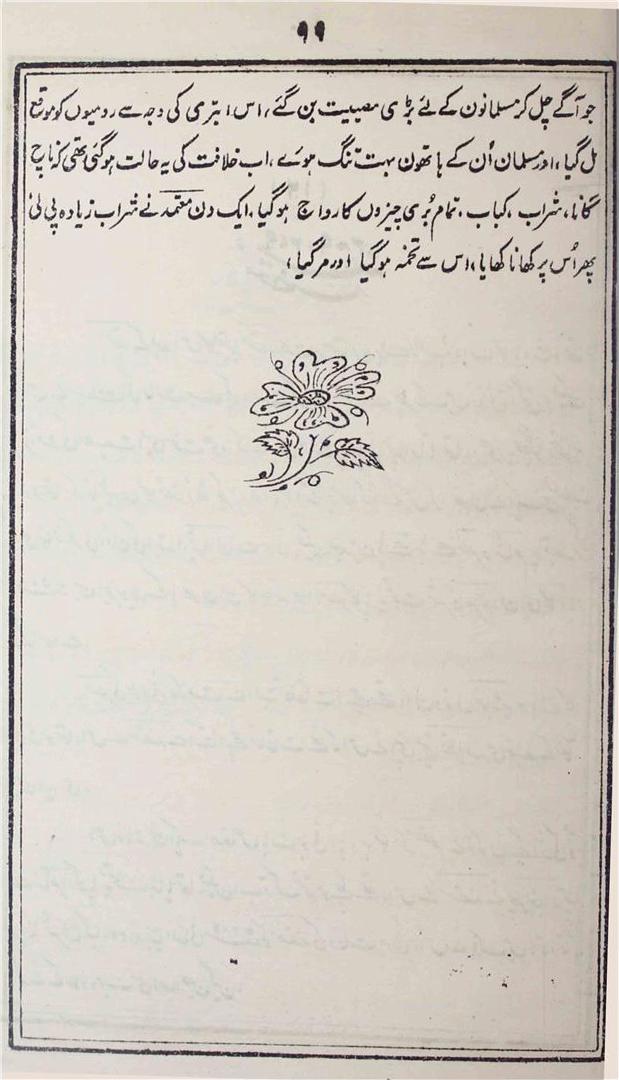 ۹۹
جو آگے چل کر مسلمانون کے لئے بڑی مصیبت بن گئے، اس ابتری کی وجہ سے رومیوں کو موقع
مل گیا، اور مسلمان اُن کے ہاتھون بہت تنگ ہوئے، اب خلافت کی یہ حالت ہوگئی تھی کہ ناچ
گانا، شراب، کباب، تمام بُری چیزوں کا رواج ہوگیا، ایک دن معتمد نے شراب زیادہ پی لی
پھر اُس پر کھانا کھایا، اس سے تخمہ ہوگیا اور مرگیا،